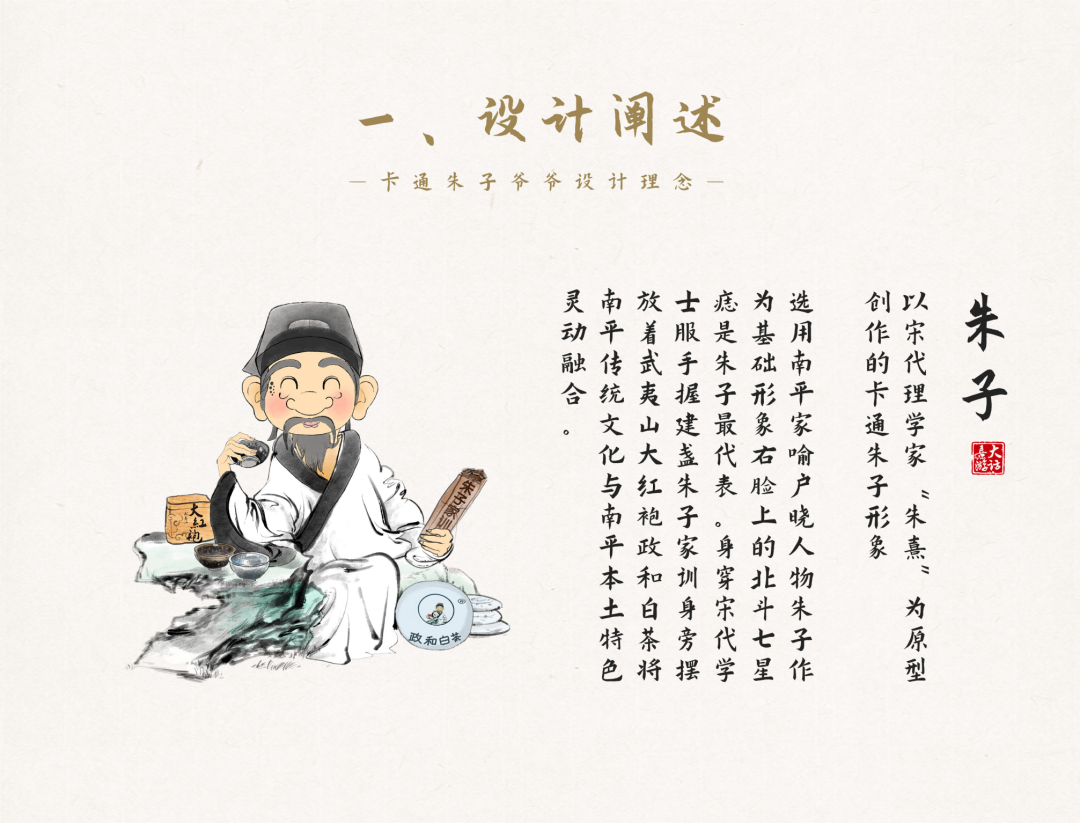 一、设计阐述
—卡通朱子爷爷设计理念—
朱子
大访
熹游
以宋代理学家“朱熹”为原型
创作的卡通朱子形象
选用南平家喻户晓人物朱子作
为基础形象右脸上的北斗七星
痣是朱子最代表。身穿宋代学
士服手握建盏朱子家训身旁摆
放着武夷山大红袍政和白茶将
南平传统文化与南平本土特色
灵动融合。
朱子家训
大红袍
政和白茶
®